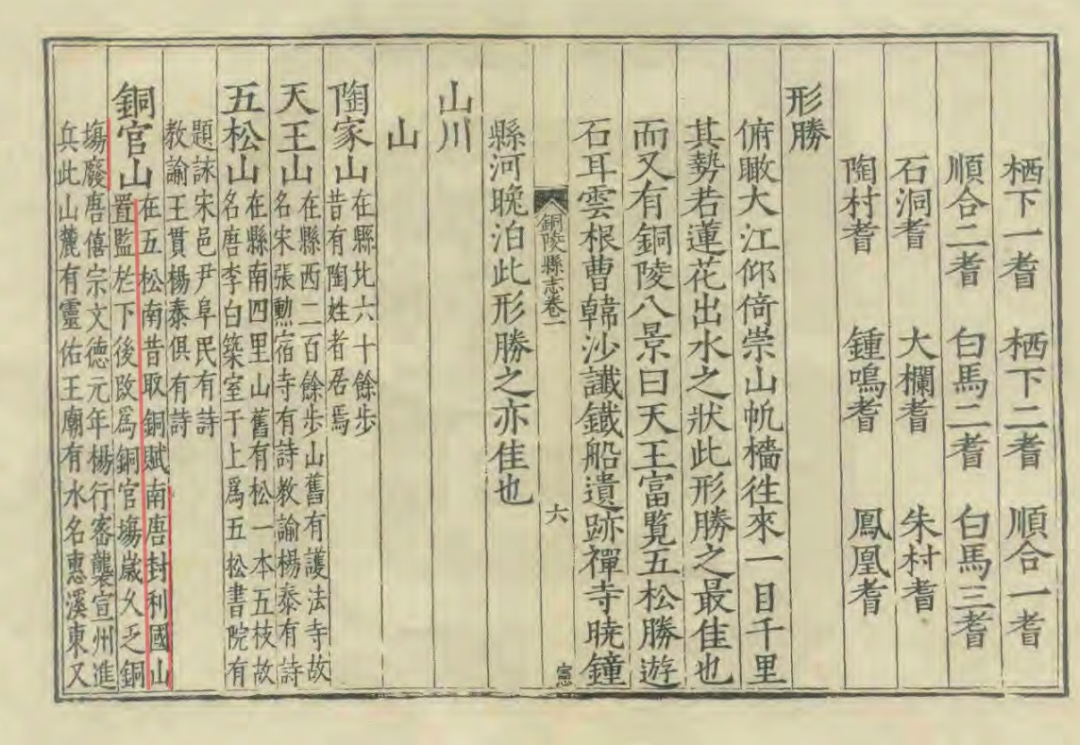 栖下一耆 栖下二耆 順合一耆
順合二耆 白馬二耆 白馬三耆
石洞耆 大欄耆 朱村耆
陶村耆 鍾鳴耆 鳳凰耆
形勝
俯瞰大江仰倚崇山帆檣徃來一目千里
其勢若蓮花出水之狀此形勝之最佳也
而又有銅陵八景曰天王富覽五松勝遊
石耳雲根曹韓沙讖鐵船遺跡禪寺曉鐘
銅陵縣志卷一
六
憲
縣河晚泊此形勝之亦佳也
山川
山
陶家山
在縣北六十餘步
昔有陶姓者居焉
天王山
在縣西二百餘步山舊有護法寺故
名宋張勲宿寺有詩教諭楊泰有詩
五松山
在縣南四里山舊有松一本五枝故
名唐李白築室于上爲五松書院有
題詠宋邑尹阜民有詩
教諭王貫楊泰俱有詩
銅官山
在五松南昔取銅賦南唐封利國山
置監於下後改爲銅官塲嵗久乏銅
塲廢唐僖宗文德元年楊行密襲宣州進
兵此山麓有靈佑王廟有水名惠溪東又